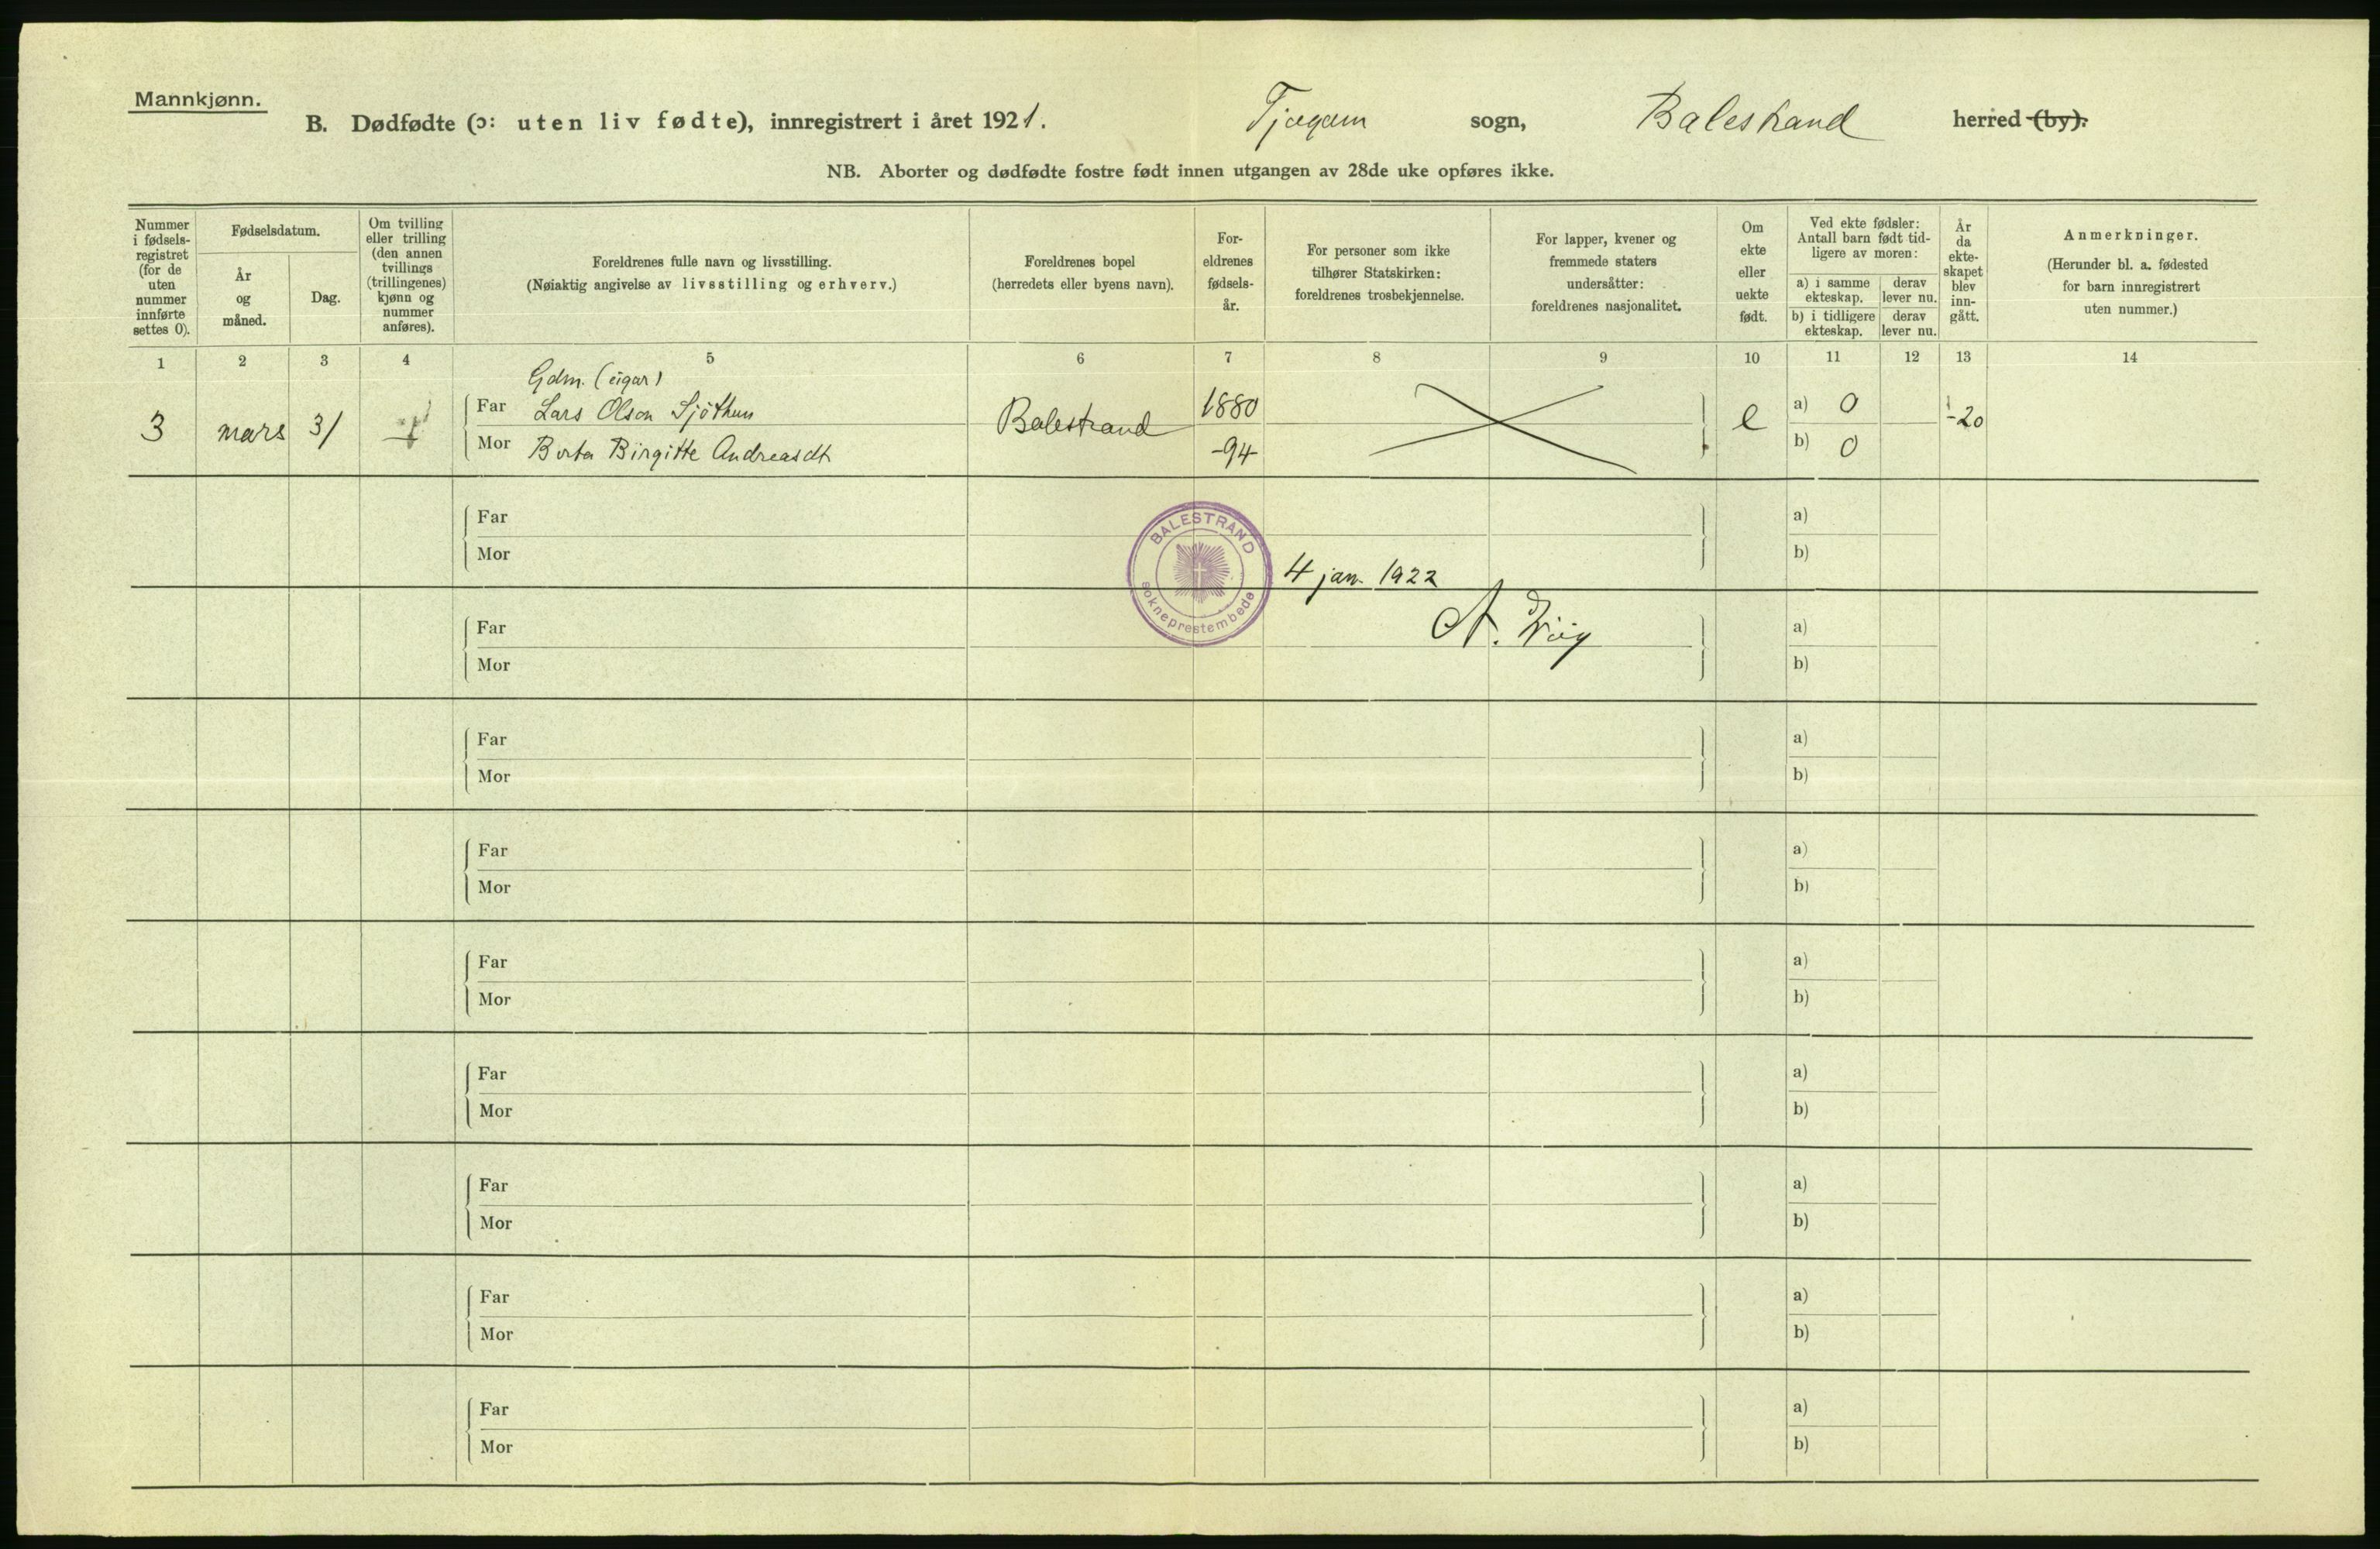 Mannkjønn.
B. Dødfødte (ɔ: uten liv fødte), innregistrert i året 1921. Tjugum sogn, Balestrand herred (by).
NB. Aborter og dødfødte fostre født innen utgangen av 28de uke opføres ikke.
Nummer
i fødsels-
registret
(for de
uten
nummer
innførte
settes 0).
Fødselsdatum.
År
og
måned.
Dag.
Om tvilling
eller trilling
(den annen
tvillings
(trillingenes)
kjønn og
nummer
anføres).
Foreldrenes fulle navn og livsstilling.
(Nøiaktig angivelse av livsstilling og erhverv.)
Foreldrenes bopel
(herredets eller byens navn).
For-
eldrenes
fødsels-
år.
For personer som ikke
tilhører Statskirken:
foreldrenes trosbekjennelse.
For lapper, kvener og
fremmede staters
undersåtter:
foreldrenes nasjonalitet.
Om
ekte
eller
uekte
født.
Ved ekte fødsler:
Antall barn født tid-
ligere av moren:
a) i samme
ekteskap.
derav
lever nu.
b) i tidligere
ekteskap.
derav
lever nu.
År
da
ekte-
skapet
blev
inn-
gått.
Anmerkninger.
(Herunder bl. a. fødested
for barn innregistrert
uten nummer.)
1 2 3 4 5 6 7 8 9 10 11 12 13 14
Gdm. (eigar)
3 mars 31 Far Lars Olson Sjøthun Balestrand 1880 e a) 0 -20
Mor Berta Birgitte Andreasdt -94 b) 0
Far a)
Mor b)
BALESTRAND
sokneprestembede
4 jan. 1922
Far A. a)
Mor b)
Far a)
Mor b)
Far a)
Mor b)
Far a)
Mor b)
Far a)
Mor b)
Far a)
Mor b)
Far a)
Mor b)
Far a)
Mor b)